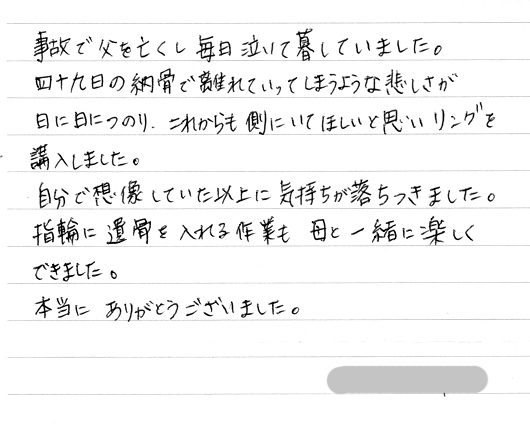 事故で父を亡くし毎日泣いて暮していました。
四十九日の納骨で離れていってしまうような悲しさが
日に日につのり、これからも側にいてほしいと思いリングを
講入しました。
自分で想像していた以上に気持ちが落ちつきました。
指輪に遺骨を入れる作業も母と一緒に楽しく
できました。
本当にありがとうございました。